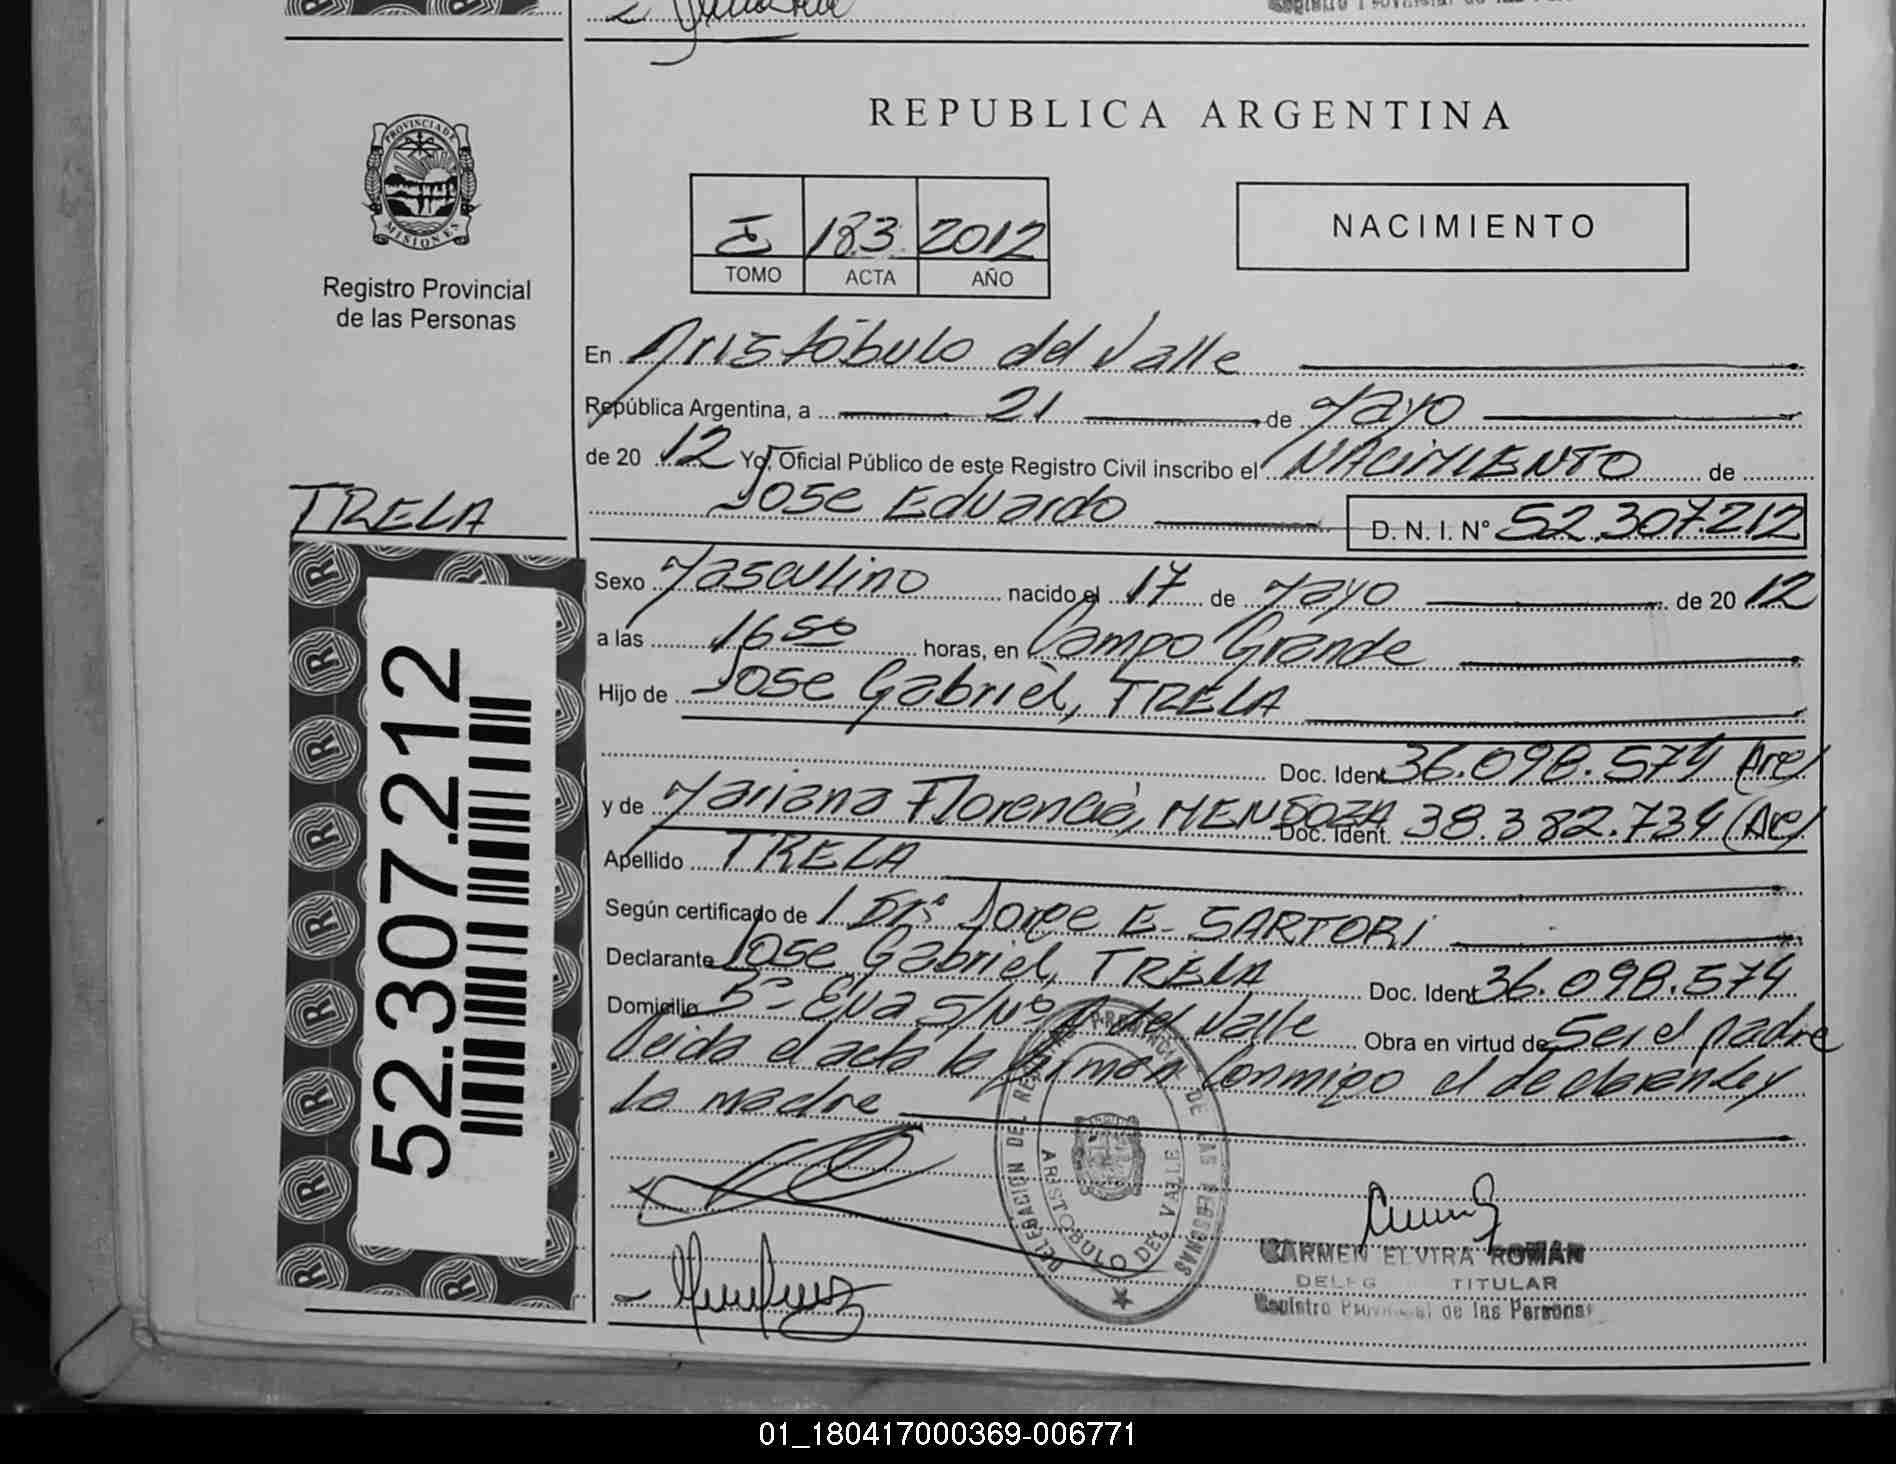 REPUBLICA ARGENTINA
PROVINCIA DE
MISIONES
Registro Provincial
de las Personas
I 183 2012
TOMO ACTA AÑO
NACIMIENTO
En Aristóbulo del Valle
República Argentina, a 21 de Mayo
de 20 12 Yo, Oficial Público de este Registro Civil inscribo el NACIMIENTO de
Jose Eduardo D. N. I. N° 52.307.212
TRELA
52.307.212
Sexo Masculino nacido el 17 de Mayo de 20 12
a las 16 50 horas, en Campo Grande
Hijo de Jose Gabriel, TRELA
Doc. Ident 36.098.574 (Are)
y de Mariana Florencia, MENDOZA Doc. Ident. 38.382.734 (Are)
Apellido TRELA
Según certificado de / Dr. Jorge E. SARTORI
Declarante Jose Gabriel, TRELA Doc. Ident 36.098.574
Domicilio B° Eva S/N° A del Valle Obra en virtud de Ser el padre
Leida el acta la firman conmigo el declarante y
la madre
DELEGACION DEL REGISTRO PROVINCIAL DE LAS PERSONAS
ARISTOBULO DEL VALLE
CARMEN ELVIRA ROMAN
DELEG TITULAR
Registro Provincial de las Personas
01_180417000369-006771